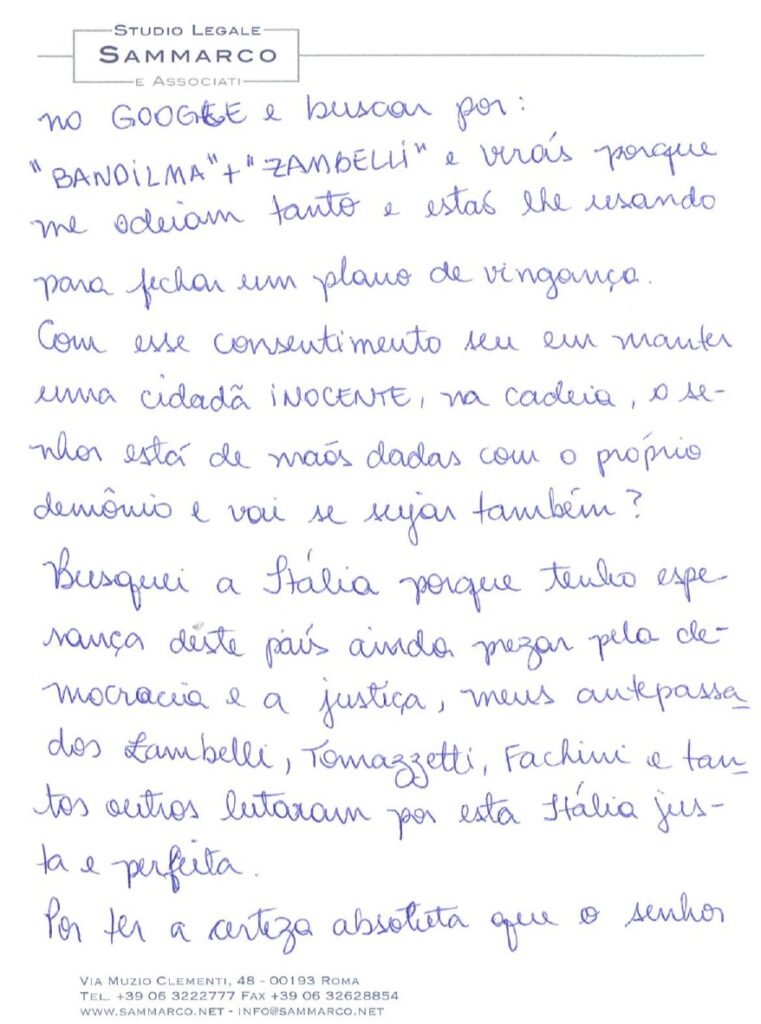 STUDIO LEGALE
SAMMARCO
E ASSOCIATI
no GOOGLE e buscar por:
"BANDILMA"+"ZAMBELLI" e verás porque
me odeiam tanto e estaõ lhe usando
para fechar um plano de vingança.
Com esse consentimento seu em manter
uma cidadã iNOCENTE, na cadeia, o se-
nhor está de maõs dadas com o próprio
demônio e vai se sujar também?
Busquei a Itália porque tenho espe-
rança deste país ainda prezar pela de-
mocracia e a justiça, meus antepassa-
dos Zambelli, Tomazzetti, Fachini e tan-
tos outros lutaram por esta Itália jus-
ta e perfeita.
Por ter a certeza absoluta que o senhor
VIA MUZIO CLEMENTI, 48 - 00193 ROMA
TEL. +39 06 3222777 FAX +39 06 32628854
WWW.SAMMARCO.NET - INFO@SAMMARCO.NET